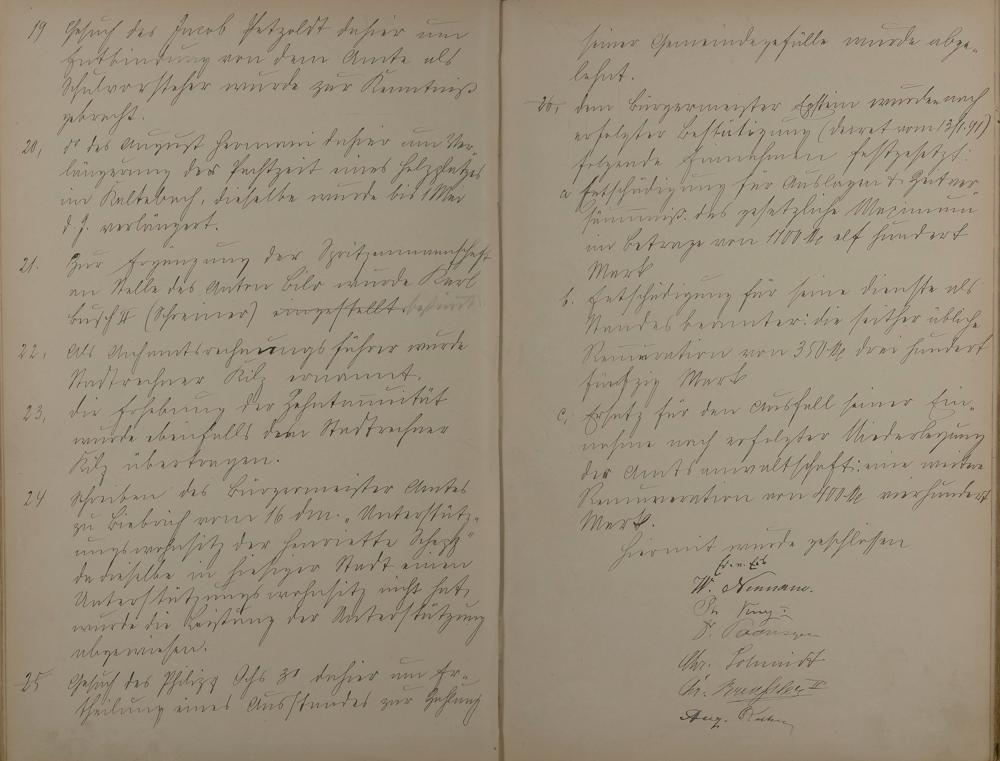 19 Gesuch des Jacob Petzoldt dahier um
Entbindung von dem Amte als
Schulvorsteher wurde zur Kenntniß
gebracht.
20, do des August Hermani dahier um Ver-
längerung der Pachtzeit eines Holzplatzes
im Kaltebach, dieselbe wurde bis 1 Mai
d. J. verlängert.
21. Zur Ergänzung der Spritzenmannschaft
an Stelle des Anton Bilo wurde Karl
Busch II (Schreiner) eingestellt.
22, Als Aichamtsrechnungsführer wurde
Stadtrechner Kilz ernannt.
23, die Erhebung der Zehntannuität
wurde ebenfalls dem Stadtrechner
Kilz übertragen.
24 Schreiben des Bürgermeister Amtes
zu Biebrich vom 16 dM. „Unterstütz-
ungswohnsitz der Henriette
da dieselbe in hiesiger Stadt einen
Unterstützungswohnsitz nicht hat,
wurde die Leistung der Unterstützung
abgewiesen.
25 Gesuch des Philipp Ochs 3r dahier um Er-
theilung eines Ausstandes zur Zahlung
seiner Gemeindegefälle wurde abge-
lehnt.
26, dem Bürgermeister Epstein wurden nach
erfolgter Bestätigung (Decret vom 13/1.91)
folgende Einnahmen festgesetzt:
a Entschädigung für Auslagen & Zeitver
säumniß das gesetzliche Maximum
im Betrage von 1100 M elf hundert
Mark
b. Entschädigung für seine Dienste als
Standesbeamter: die seither übliche
Remuneration von 350 M drei hundert
fünfzig Mark
c, Ersatz für den Ausfall seiner Ein-
nahme nach erfolgter Niederlegung
der Amtsanwaltschaft: eine weitere
Remuneration von 400 M vierhundert
Mark.
Hiermit wurde geschlossen
W. Neumann.
Chr. Schmidt
Aug.